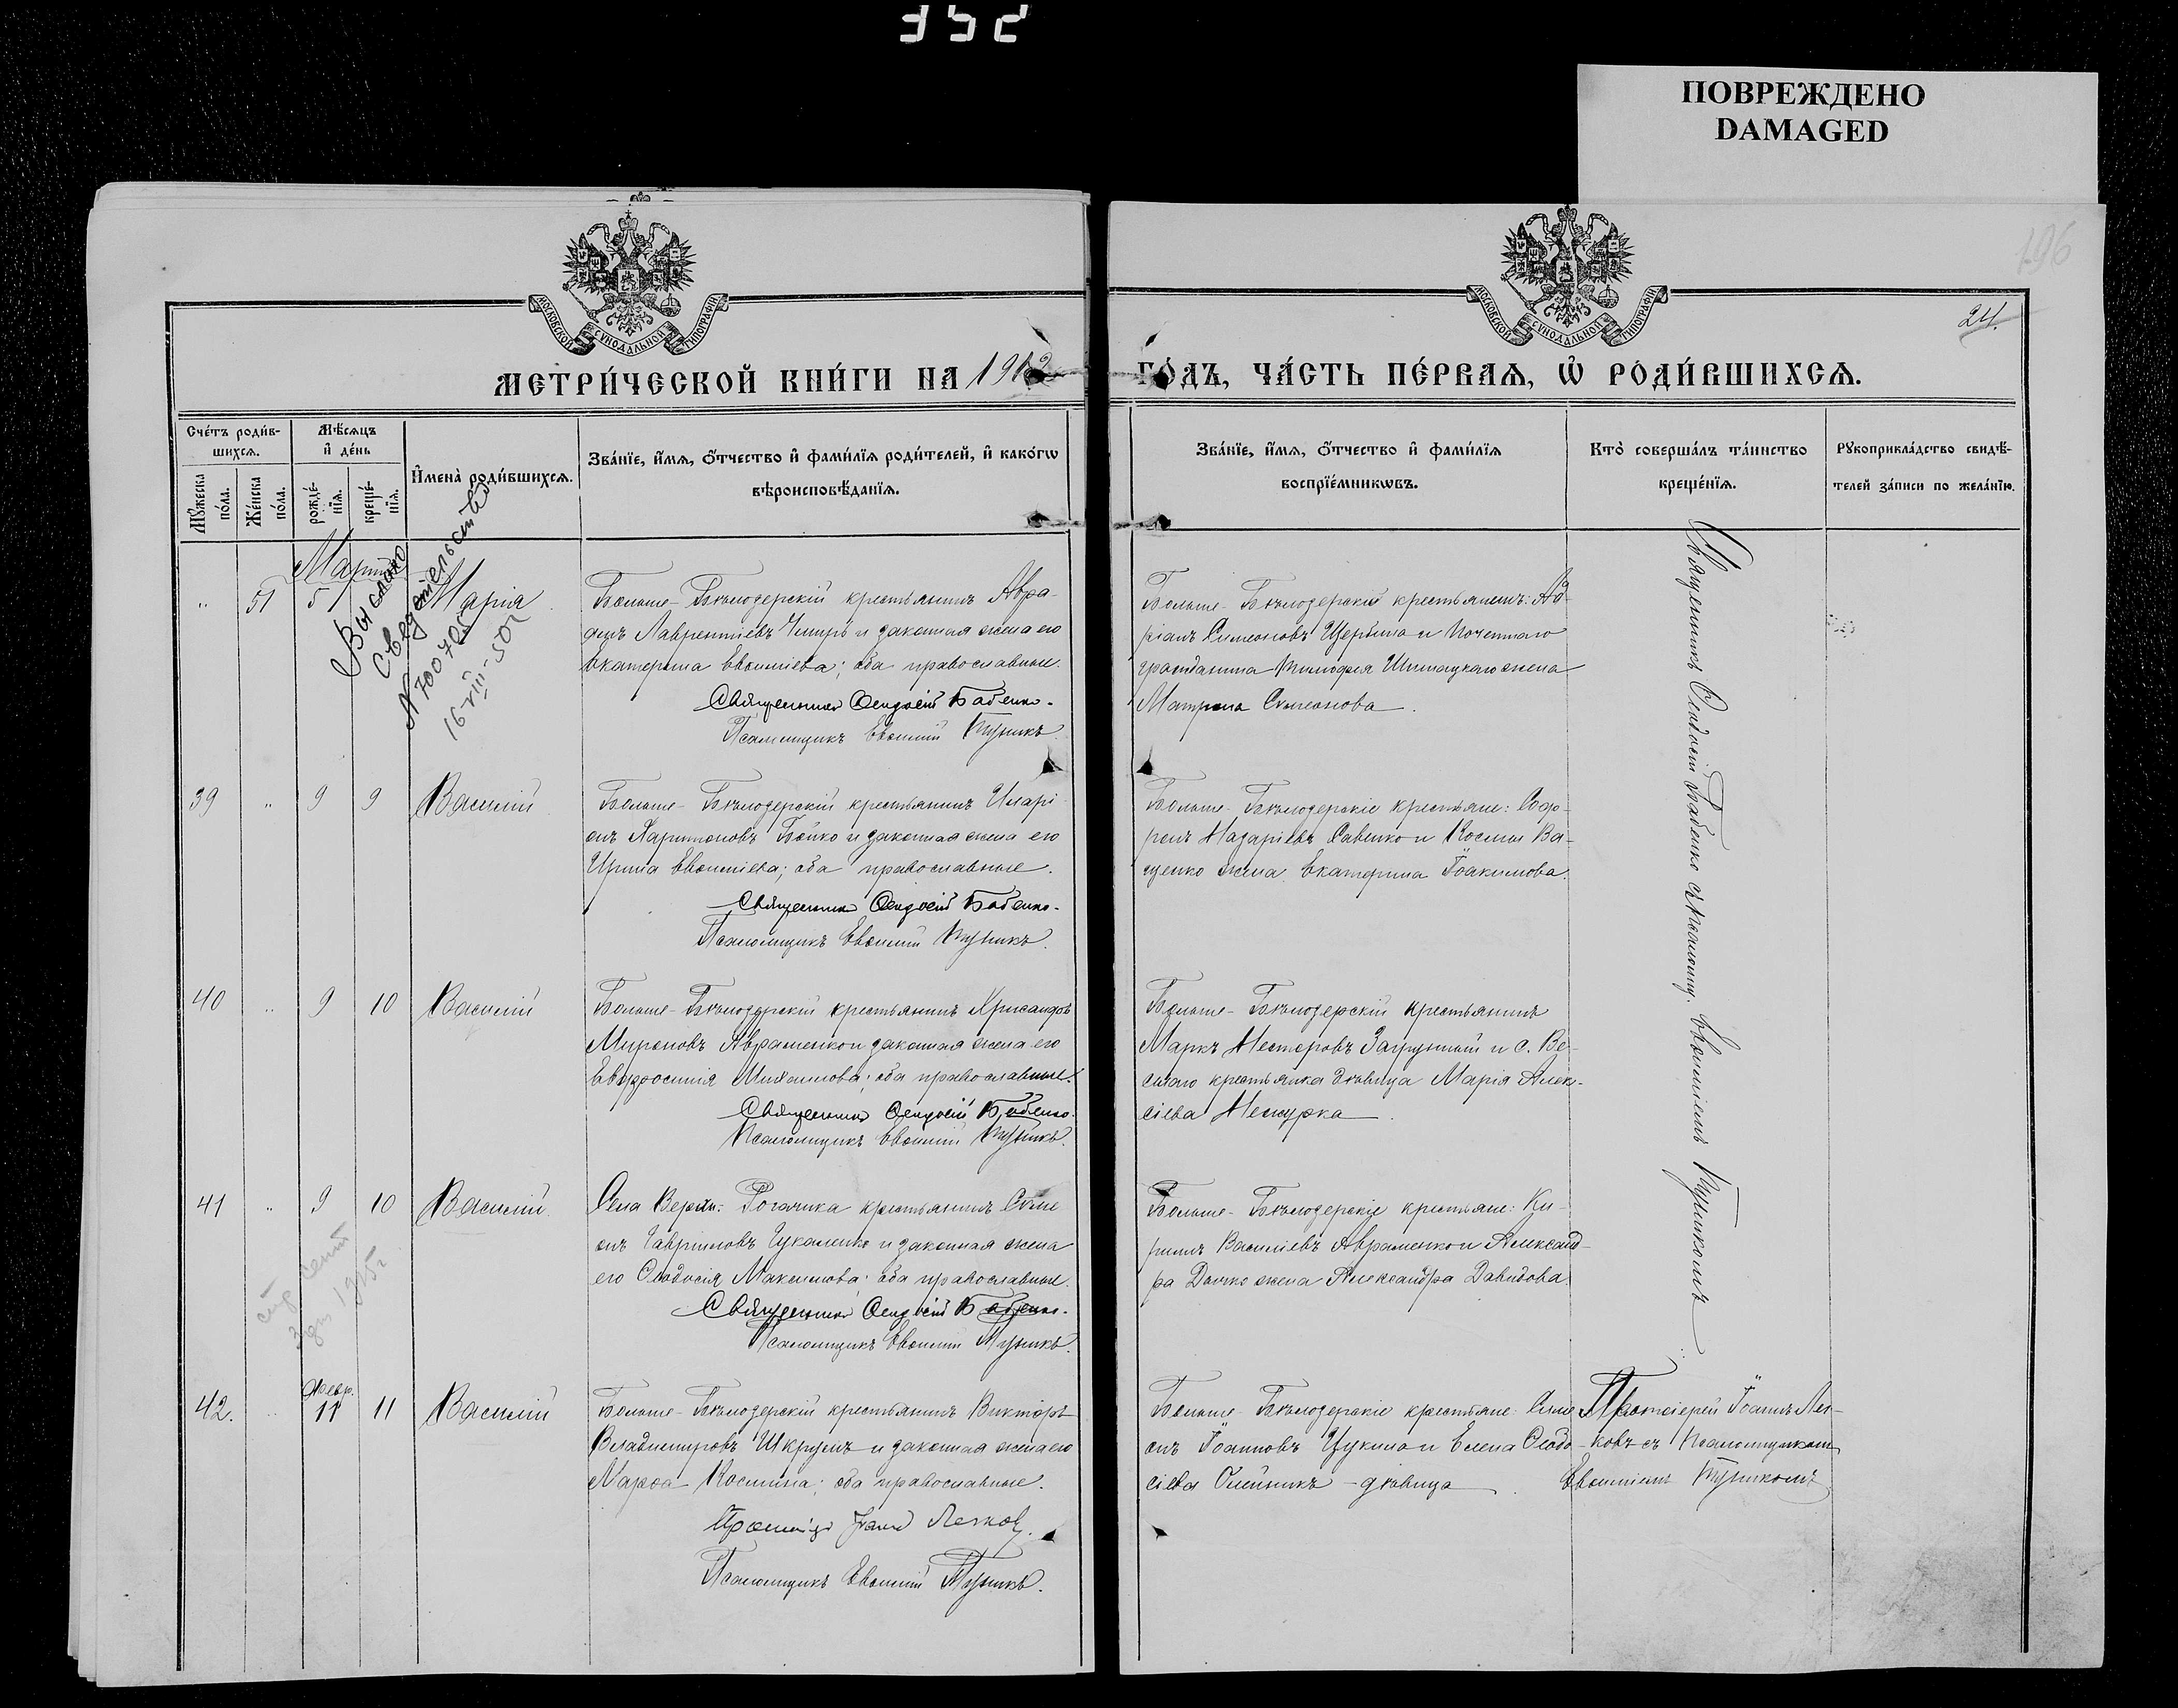 352
ПОВРЕЖДЕНО
DAMAGED
196
24.
МОСКОВСКОЙ СѴНОДАЛЬНОЙ ТИПОГРАФІИ
МОСКОВСКОЙ СѴНОДАЛЬНОЙ ТИПОГРАФІИ
МЕТРИ́ЧЕСКОЙ КНИ́ГИ НА 1912
ГО́ДЪ, ЧА́СТЬ ПЕ́РВАЯ, Ѡ҆ РОДИ́ВШИХСѦ.
Сче́тъ роди́в-
шихсѧ.
Мꙋ́жеска по́ла.
Же́нска по́ла.
Мѣ́сѧцъ
и҆ де́нь
рожде́-
нїѧ.
креще́-
нїѧ.
И҆мена̀ роди́вшихсѧ.
Зва́нїе, и҆́мѧ, ѻ҆́тчество и҆ фами́лїѧ роди́телей, и҆ како́гѡ
вѣроисповѣ́данїѧ.
Зва́нїе, и҆́мѧ, ѻ҆́тчество и҆ фами́лїѧ
воспрїе́мникѡвъ.
Кто̀ соверша́лъ та́инство
креще́нїѧ.
Рꙋкоприкла́дство свидѣ́-
телей за́писи по жела́нїю.
Марта
„ 51 5 Марія
Выслано
Свидетельство
N 700705
16-VIII-50г
Больше-Бѣлозерскій крестьянинъ Авра-
амъ Лаврентіевъ Чмиръ и законная жена его
Екатерина Евѳиміева; оба православные.
Священникъ Ѳеодосій Бабенко.
Псаломщикъ Евѳимій Пузикъ
Больше-Бѣлозерскій крестьянинъ: Ад-
ріанъ Симеоновъ Щербина и Почетнаго
гражданина Тимоѳея Шишацкаго жена
Матрона Симеонова.
Священникъ Ѳеодосій Бабенко съ псаломщ. Евѳиміемъ Пузикомъ
39 „ 9 9 Василій
Больше-Бѣлозерскій крестьянинъ Иларі
онъ Харитоновъ Бойко и законная жена его
Ирина Евѳиміева; оба православные.
Священникъ Ѳеодосій Бабенко.
Псаломщикъ Евѳимій Пузикъ.
Больше-Бѣлозерскіе крестьяне: Соф-
ронъ Назаріевъ Савенко и Космы Ва-
щенко жена Екатерина Іоакимова.
40 „ 9 10 Василій
Больше-Бѣлозерскій крестьянинъ Хрисанфъ
Мироновъ Авраменко и законная жена его
Евфросинія Михаилова; оба православные.
Священникъ Ѳеодосій Бабенко.
Псаломщикъ Евѳимій Пузикъ.
Больше-Бѣлозерскій крестьянинъ
Маркъ Несторовъ Загрушній и с. Ве-
селаго крестьянка дѣвица Марія Алек-
сіева Нешурка.
41 „ 9 10 Василій.
1915г
Села Верхн. Рогачика крестьянинъ Симе
онъ Гавриловъ Цукаленко и законная жена
его Ѳеодосія Максимова; оба православные.
Священникъ Ѳеодосій Бабенко.
Псаломщикъ Евѳимій Пузикъ.
Больше-Бѣлозерскіе крестьяне: Ки-
риллъ Василіевъ Авраменко и Александ-
ра Дочко жена Александра Давидова.
42. „ Февр. 11 11 Василій
Больше-Бѣлозерскій крестьянинъ Викторъ
Владимировъ Шкрумъ и законная жена его
Марѳа Космина; оба православные.
Протоіерей Іоаннъ Легковъ.
Псаломщикъ Евѳимій Пузикъ.
Больше-Бѣлозерскіе крестьяне: Симе
онъ Іоанновъ Цукило и Елена Ѳеодо-
сіева Олейникъ - дѣвица.
Протоіерей Іоаннъ Лег-
ковъ съ псаломщикомъ
Евѳиміемъ Пузикомъ